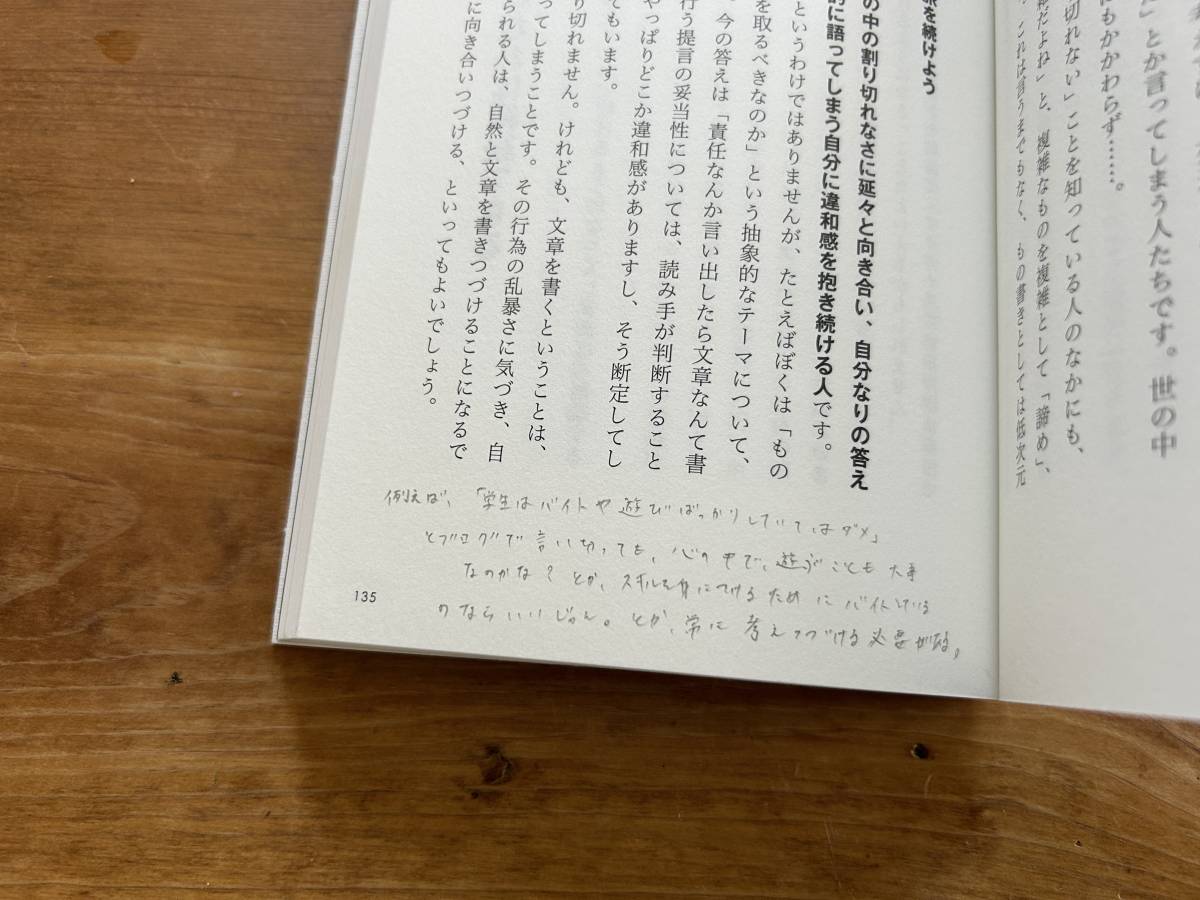 にもかかわらず……。
」とか言ってしまう人たちです。世の中
切れない」ことを知っている人のなかにも、
雑だよね」と、複雑なものを複雑として「諦め」、
これは言うまでもなく、もの書きとしては低次元
を続けよう
の中の割り切れなさに延々と向き合い、自分なりの答え
的に語ってしまう自分に違和感を抱き続ける人です。
というわけではありませんが、たとえばぼくは「もの
を取るべきなのか」という抽象的なテーマについて、
今の答えは「責任なんか言い出したら文章なんて書
行う提言の妥当性については、読み手が判断すること
やっぱりどこか違和感がありますし、そう断定してし
てもいます。
り切れません。けれども、文章を書くということは、
ってしまうことです。その行為の乱暴さに気づき、自
られる人は、自然と文章を書きつづけることになるで
に向き合いつづける、といってもよいでしょう。
例えば、「学生はバイトや遊びばっかりしていてはダメ」
とブログで言い切っても、心の中で、遊ぶことも大事
なのかな?とか、スキルを身につけるためにバイトしている
のならいいじゃん。とか、常に考えつづける必要がある。
135